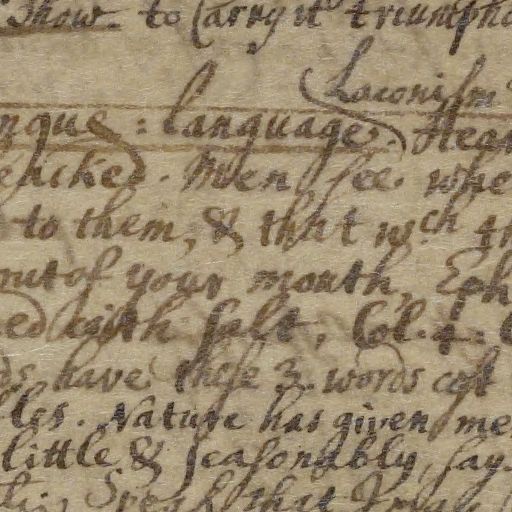 Show. to Carry it triumpha
Laconism
ngue: language. Hear
encked. Men see whe
to them, & that wch th
out of your mouth, Eph
ed with salt, Col. 4.
ds have these 3. words cost
les. Nature has given me
little & seasonably, say.
Speak that I may